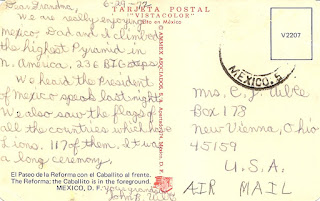 6-29-72
Dear Grandma,
We are really enjoying
Mexico. Dad and I climbed
the highest Pyramid in
N. America, 236 BIG steps.
We heard the President
of Mexico speak last night.
We also saw the flags of
all the countries which have
Lions. 117 of them. It was
a long ceremony.
Your grandson
John
TARJETA POSTAL
"VISTACOLOR"
Hecho en México
El Paseo de la Reforma con el Caballito al frente.
The Reforma; the Caballito is in the foreground.
MEXICO, D. F.
V2207
MEXICO,
Mrs. C. J.
Box 178
New Vienna, Ohio
45159
U.S.A.
AIR MAIL